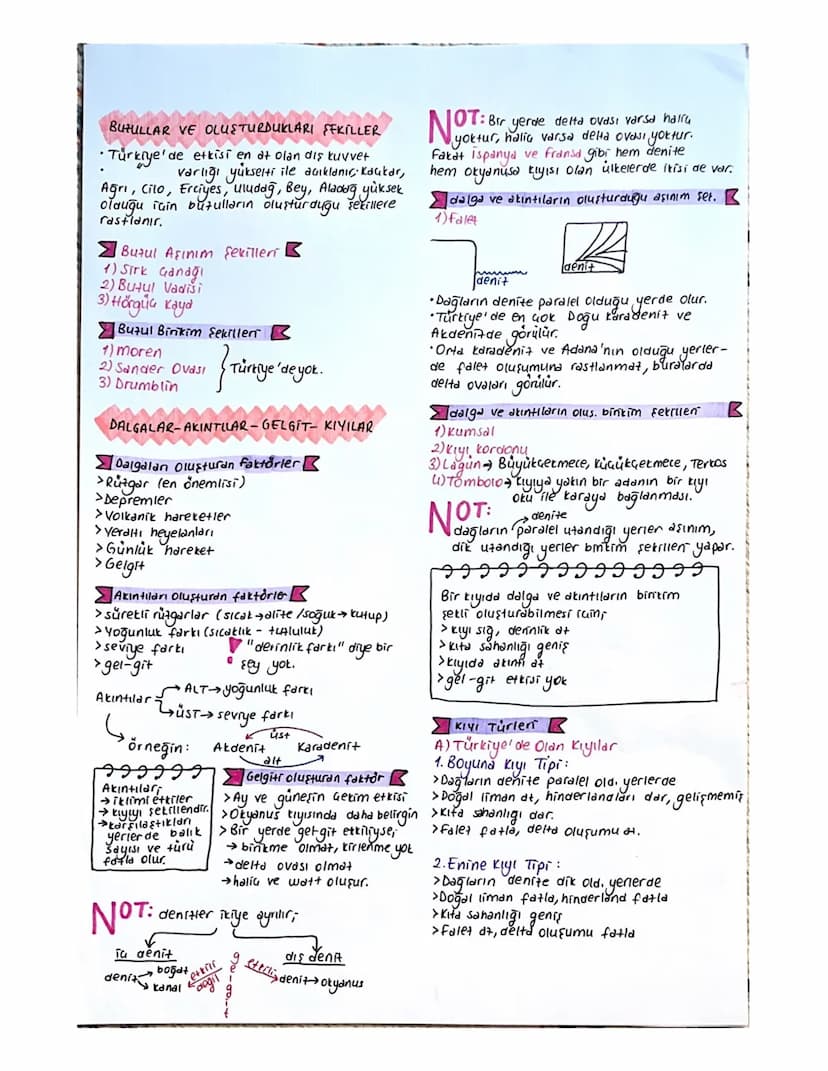 BUZULLAR VE OLUŞTURDUKLARI ŞEKİLLER
• Türkiye'de etkisi en az olan dış kuvvet
• varlığı yükselti ile açıklanır. Kaçkar,
Ağrı, Cilo, Erciyes, Uludağ, Bey, Aladağ yüksek
olduğu için buzulların oluşturduğu şekillere
rastlanır.
Buzul Aşınım Şekilleri
1) Sirk Çanağı
2) Buzul Vadisi
3) Hörgüç Kaya
Buzul Birikim Şekilleri
1) Moren
2) Sander Ovası
3) Drumblin
Türkiye'de yok.
DALGALAR-AKINTILAR-GELGİT-KIYILAR
Dalgaları Oluşturan Faktörler
> Rüzgar (en önemlisi)
> Depremler
> Volkanik hareketler
> Yeraltı heyelanları
> Günlük hareket
> Gelgit
Akıntıları Oluşturan Faktörler
> sürekli rüzgarlar (sıcak → alize / soğuk → kutup)
> Yoğunluk farkı (sıcaklık - tuzluluk)
> seviye farkı
> gel-git
! "derinlik farkı" diye bir
şey yok.
Akıntılar
→ ALT → yoğunluk farkı
→ ÜST → seviye farkı
örneğin:
üst
Akdeniz Karadeniz
alt
Akıntılar;
→ iklimi etkiler
→ kıyıyı şekillendirir.
→ karşılaştıkları
yerlerde balık
sayısı ve türü
fazla olur.
Gelgiti oluşturan faktör
> Ay ve güneşin çekim etkisi
> Okyanus kıyısında daha belirgin
> Bir yerde gel-git etkiliyse;
→ birikme olmaz, kirlenme yok
→ delta ovası olmaz
→ haliç ve watt oluşur.
NOT: denizler ikiye ayrılır;
iç deniz
deniz → boğaz
→ kanal
etkili
değil
gelgit
etkili
dış deniz
deniz → okyanus
NOT: Bir yerde delta ovası varsa haliç
yoktur, haliç varsa delta ovası yoktur.
Fakat İspanya ve Fransa gibi hem denize
hem okyanusa kıyısı olan ülkelerde ikisi de var.
dalga ve akıntıların oluşturduğu aşınım şek.
1) Falez
deniz
deniz
• Dağların denize paralel olduğu yerde olur.
• Türkiye'de en çok Doğu Karadeniz ve
Akdenizde görülür.
• Orta Karadeniz ve Adana'nın olduğu yerler-
de falez oluşumuna rastlanmaz, buralarda
delta ovaları görülür.
dalga ve akıntıların oluş. birikim şekilleri
1) Kumsal
2) Kıyı kordonu
3) Lagün → Büyükçekmece, Küçükçekmece, Terkos
4) Tombolo → kıyıya yakın bir adanın bir kıyı
oku ile karaya bağlanması.
NOT:
denize
dağların paralel uzandığı yerler aşınım,
dik uzandığı yerler birikim şekilleri yapar.
Bir kıyıda dalga ve akıntıların birikim
şekli oluşturabilmesi için;
> kıyı sığ, derinlik az
> kıta sahanlığı geniş
> kıyıda akıntı az
> gel-git etkisi yok
Kıyı Türleri
A) Türkiye'de Olan Kıyılar
1. Boyuna Kıyı Tipi:
> Dağların denize paralel old. yerlerde
> Doğal liman az, hinderlandları dar, gelişmemiş
> Kıta sahanlığı dar.
> Falez fazla, delta oluşumu az.
2. Enine Kıyı Tipi:
> Dağların denize dik old. yerlerde
> Doğal liman fazla, hinderland fazla
> Kıta sahanlığı geniş
> Falez az, delta oluşumu fazla